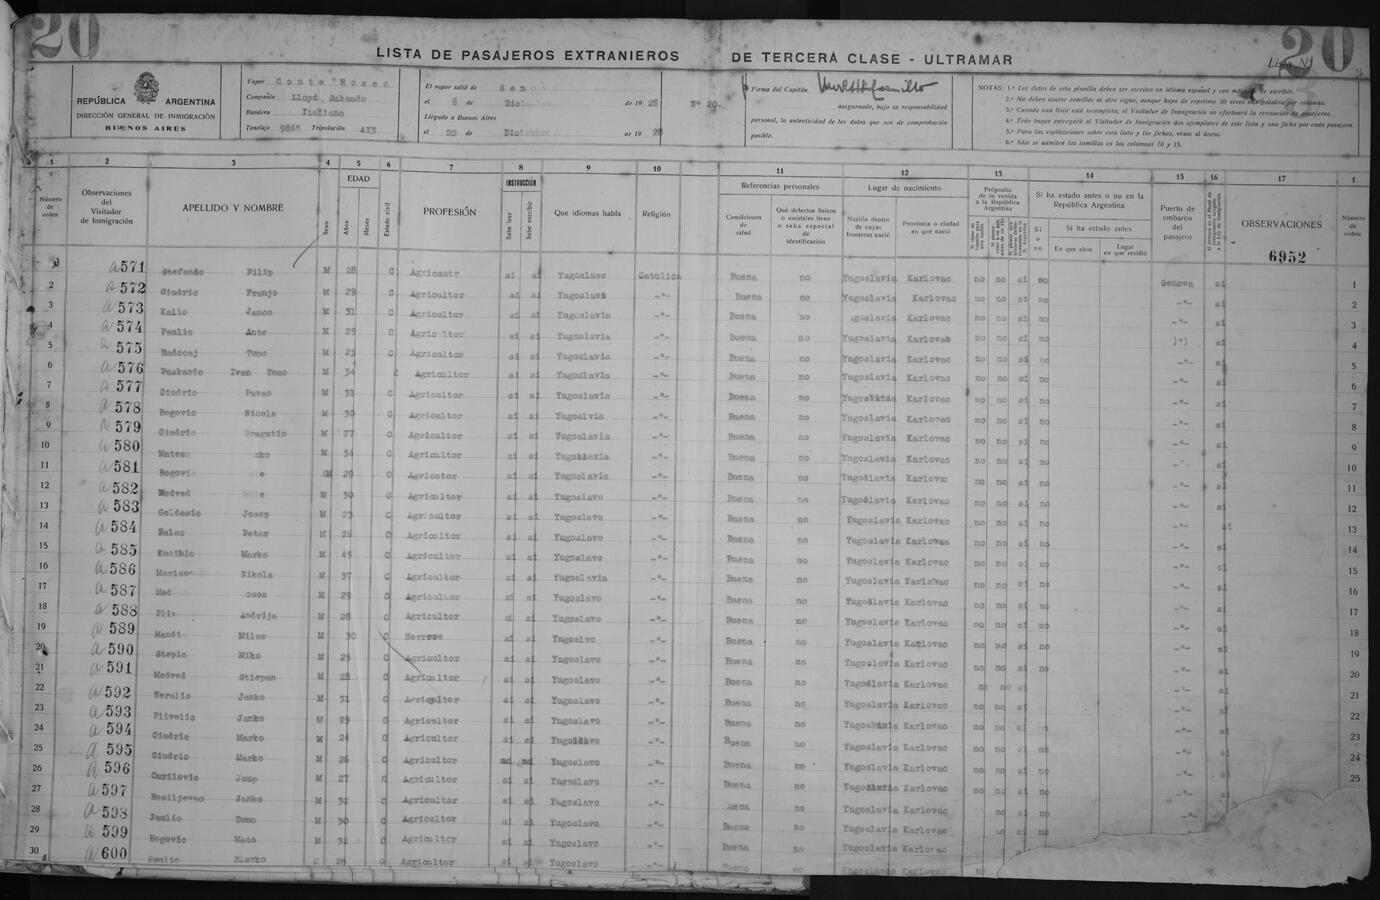 20
20
LISTA DE PASAJEROS EXTRANIEROS DE TERCERA CLASE - ULTRAMAR
Lista N.
REPÚBLICA ARGENTINA
DIRECCIÓN GENERAL DE INMIGRACIÓN
BUENOS AIRES
Vapor Conte Rosso
Compañía Lloyd Sabaudo
Bandera Italiana
Tonelaje 9865 Tripulación 413
El vapor salió de Geno
el 6 de Dic de 1928
Llegado a Buenos Aires
el 20 de Diciembre de 1928
Nº 20.
Firma del Capitán
asegurando, bajo su responsabilidad
personal, la autenticidad de los datos que son de comprobación
posible.
NOTAS: 1.ª Los datos de esta planilla deben ser escritos en idioma español y con máquina de escribir.
2.ª No deben usarse comillas ni otro signo, aunque haya de repetirse 30 veces una palabra por columna.
3.ª Cuando una lista está incompleta, el Visitador de Inmigración no efectuará la revisación de pasajeros.
4.ª Todo buque entregará al Visitador de Inmigración dos ejemplares de esta lista y una ficha por cada pasajero.
5.ª Para las explicaciones sobre esta lista y las fichas, véase al dorso.
6.ª Sólo se admiten las comillas en las columnas 10 y 15.
1 2 3 4 5 6 7 8 9 10 11 12 13 14 15 16 17 1
Número de orden
Observaciones del Visitador de Inmigración
APELLIDO Y NOMBRE
Sexo
EDAD
Años
Meses
Estado civil
PROFESIÓN
INSTRUCCIÓN
Sabe leer
Sabe escribir
Que idiomas habla
Religión
Referencias personales
Condiciones de salud
Qué defectos físicos o mentales tiene o seña especial de identificación
Lugar de nacimiento
Nación dentro de cuyas fronteras nació
Provincia o ciudad en que nació
Propósito de su venida a la República Argentina
Si ha estado antes o no en la República Argentina
Sí o no
Si ha estado antes
En que años
Lugar en que residió
Puerto de embarco del pasajero
OBSERVACIONES
6952
Número de orden
a 571 Stefanic Filip M 28 C Agricaotr si si Yugoslavo Catolica Buena no Yugoslavia Karlovac no no si no Genova si 1
2 a 572 Cindric Franjo M 29 C Agricultor si si Yugoslavi -"- Buena no Yugoslavia Karlovac no no si no -"- si 2
3 a 573 Kalic Janco M 31 C Agricultor si si Yugoslavia -"- Buena no Karlovac no no si no -"- si 3
4 a 574 Paulic Ante M 25 C Agric ltor si si Yugoslavia -"- Buena no Yugoslavia no no si no si 4
5 a 575 Tomo M 23 C Agricultor si si Yugoslavia -"- Buena no Yugoslavia Karlovac no no si no -"- si 5
6 a 576 Puskaric Ivan Tomo M 34 C Agricultor si si Yugoslavia -"- Buena no Yugoslavia Karlovac no no si no -"- si 6
7 a 577 Cindric Pavao M 31 C Agricultor si si Yugoslavia -"- Buena no Karlovac no no si no -"- si 7
8 a 578 Bogovic Nicola M 30 C Agricultor si si Yugoalvia -"- Buena no Yugoslavia Karlovac no no si no -"- si 8
9 a 579 Cindric Dragutin M 27 C Agricultor si si Yugoslavia -"- Buena no Yugoslavia Karlovac no no si no -"- si 9
10 a 580 M 34 C Agricultor si si -"- Buena no Yugoslavia Karlovac no no si no -"- si 10
11 a 581 Bogovic 29 C si si Yugoslavia -"- Buena no Karlovac no no si no -"- si 11
12 a 582 Medved M 30 C Agricultor si si Yugoslavo -"- Buena no Karlovac no no si no -"- si 12
13 a 583 Josep M 23 C Agricultor si si Yugoslavo -"- Buena no Yugoslavia Karlovac no no si no -"- 13
14 a 584 Zalac Petar M 26 C Agricultor si si Yugoslavo -"- Buena no Yugoslavia Karlovac no no si no -"- si 14
15 a 585 Marko M 45 C Agricultor si si Yugoslavo -"- Buena no Yugoslavia Karlovac no no si no -"- si 15
16 a 586 Nikola M 37 C Agricultor si si Yugoslavia -"- Buena no Yugoslavia Karlovac no no si no -"- si 16
17 a 587 Med M 29 C Agricultor si si Yugoslavo -"- Buena no Yugoslavia Karlovac no no si no -"- si 17
18 a 588 Andrija M 28 C Agricultor si Yugoslavo -"- Buena no Yugoslavia Karlovac no no si no -"- si 18
19 a 589 Milos M 30 C si si Yugoslvo -"- Buena no Yugoslavia Karlovac no no si no -"- si 19
20 a 590 Stepic Miko M 25 C Agricultor si si Yugoslavo -"- Buena no Yugoslavia Karlovac no no si no -"- si 20
21 a 591 Medved Stiepan M 28 C Agricultor si si Yugoslavo -"- Buena no Yugoslavia Karlovac no no si -"- si 21
22 a 592 Neralic Janko M 31 C Agricultor si si Yugoslavo -"- Buena no Yugoslavia Karlovac no no si no -"- si 22
23 a 593 Plivelic Janko M 29 C Agricultor si si Yugoslavo -"- Buena no Karlovac no no si no -"- si 23
24 a 594 Cindric Marko M 24 C Agricultor si si -"- Buena no Yugoslavia Karlovac no no si no -"- si 24
25 a 595 Cindric Marko M 26 C Agricultor Yugoslavo -"- Buena no Yugoslavia Karlovac no no si no -"- si 25
26 a 596 Carilovic Josp M 27 C Agricultor si si Yugoslavo -"- Buena no Karlovac no no si no -"-
27 a 597 Bosiljevac Janko M 32 C Agricultor si si Yugoslavo -"- no Yugoslavia Karlovac no si no
28 a 598 Paulic Tomo M 30 C Agricultor si si Yugoslavo -"- Buena no Yugoslavia Karlovac no si
29 a 599 Bogovic Mato M 32 C Agricultor si si Yugoslavo -"- Buena no Yugoslavia Karlovac
30 a 600 Paulic Slavko 28 C Agricultor si si Yugoslavo -"- Buena no Yugoslavia Karlovac